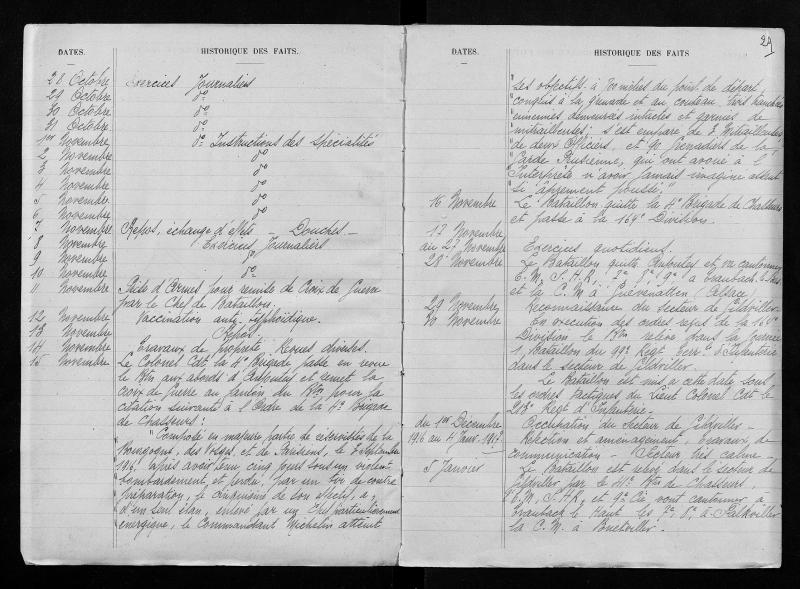 DATES. HISTORIQUE DES FAITS.
28 Octobre Exercices Journaliers
29 Octobre do
30 Octobre do
31 Octobre do
1er Novembre do Instructions des Spécialités
2 Novembre do
3 Novembre do
4 Novembre do
5 Novembre do
6 Novembre do
7 Novembre Repos, échange d'effets - Douches -
8 Novembre Exercices Journaliers
9 Novembre do
10 Novembre do
11 Novembre Prise d'Armes pour remise de Croix de Guerre
par le Chef de Bataillon.
12 Novembre Vaccination anti-typhoïdique.
13 Novembre Repos
14 Novembre Travaux de propreté Revues diverses.
15 Novembre Le Colonel Cdt la 4e Brigade passe en revue
le Btn aux abords d' et remet la
croix de guerre au fanion du Btn pour la
citation suivante à l'Ordre de la 4e Brigade
de Chasseurs:
"Composé en majeure partie de réservistes de la
Bourgogne, des Vosges, et de Parisiens, le 3 Septembre
1916, après avoir tenu cinq jours sous un violent
bombardement et perdu, par un tir de contre
préparation, le de son effectif, a,
d'un seul élan, enlevé par un Chef particulièrement
énergique, le Commandant Michelin atteint
29
DATES. HISTORIQUE DES FAITS
"ses objectifs à 700 mètres du point de départ,
conquis à la grenade et au couteau trois tranchées
"ennemies demeurées intactes et garnies de
"mitrailleuses; s'est emparé de 7 Mitrailleuses
"de deux Officiers, et 90 grenadiers de la
"Garde Prussienne, qui ont avoué à l'
"Interprète n'avoir jamais imaginé assaut
"si âprement poussé"
16 Novembre Le Bataillon quitte la 4e Brigade de Chasseurs
et passe à la 164e Division.
17 Novembre
au 27 Novembre Exercices quotidiens.
28 Novembre Le Bataillon quitte et va cantonner
E.M., S.H.R., 7e, 8e, 9e à Traubach le Bas
et la C.M. à Guevenatten (Alsace)
29 Novembre Reconnaissance du secteur de Gildwiller
30 Novembre En exécution des ordres reçus de la 164e
Division le Btn relève dans la journée
1 Bataillon du 99e Regt Terr d'Infanterie
dans le secteur de Gildwiller.
Le Bataillon est mis à cette date sous
les ordres tactiques du Lieut Colonel Cdt le
213e Regt d'Infanterie -
du 1er Décembre Occupation du Secteur de Gildwiller -
1916 au 4 Janv. 1917 Réfection et aménagement, travaux de
communication - Secteur très calme -
5 Janvier Le Bataillon est relevé dans le secteur de
Gildwiller par le Btn de Chasseurs,
E.M, S.H.R, et 9e Cie vont cantonner à
Traubach le Haut les 7e, 8e, à Falkwiller
la C.M. à Bretwiller